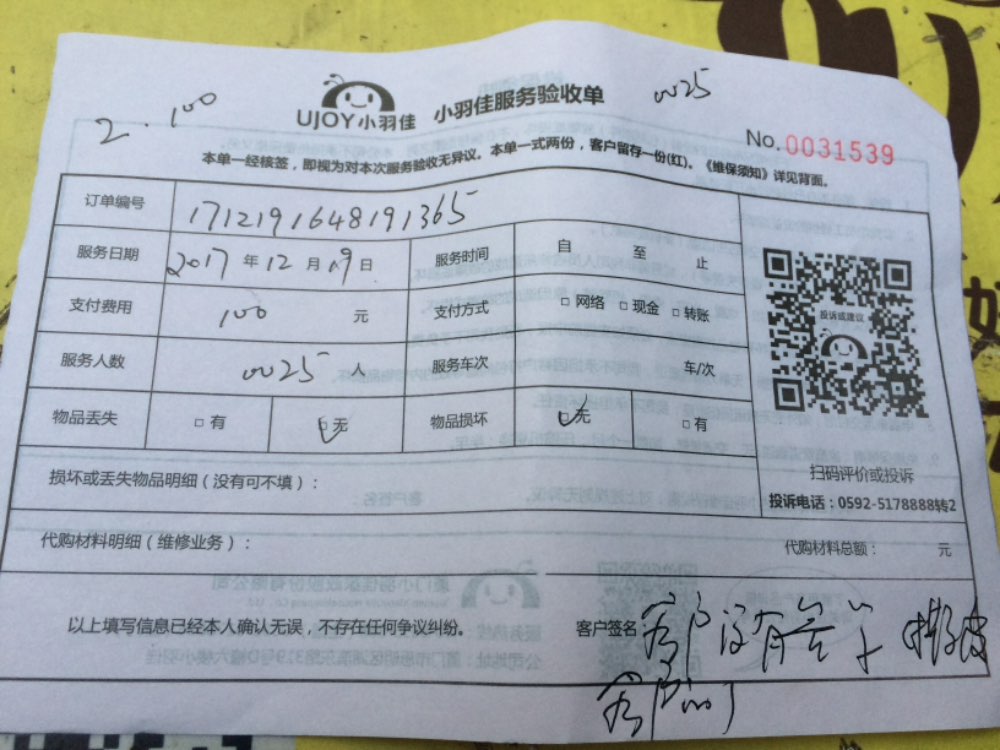 2.100
UJOY小羽佳 小羽佳服务验收单 0025
No.0031539
本单一经核签，即视为对本次服务验收无异议。本单一式两份，客户留存一份(红)。《维保须知》详见背面。
订单编号 1712191648191365
服务日期 2017年12月19日 服务时间 自 至 止
支付费用 100 元 支付方式 □网络 □现金 □转账
投诉或建议
服务人数 0025 人 服务车次 车/次
物品丢失 □有 □无 物品损坏 □无 □有
损坏或丢失物品明细（没有可不填）：
扫码评价或投诉
投诉电话：0592-5178888转2
代购材料明细（维修业务）： 代购材料总额： 元
以上填写信息已经本人确认无误，不存在任何争议纠纷。 客户签名： 客户没有签字